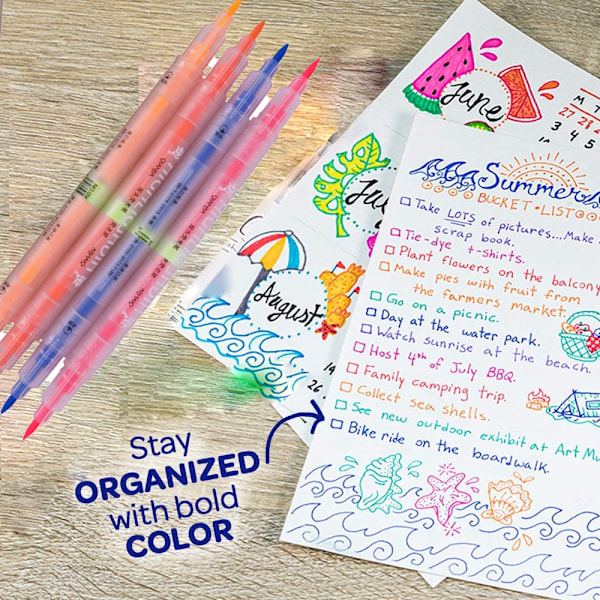 June
M T
27 28
3 4 5
August
Summer
BUCKET LIST
Take LOTS of pictures...Make
scrap book.
Tie-dye t-shirts.
Plant flowers on the balcony
Make pies with fruit from
the farmers market
Go on a picnic.
Day at the water park.
Watch sunrise at the beach.
Host 4th of July BBQ.
Family camping trip.
Collect sea shells.
See new outdoor exhibit at Art Mu
Bike ride on the boardwalk.
Stay
ORGANIZED
with bold
COLOR